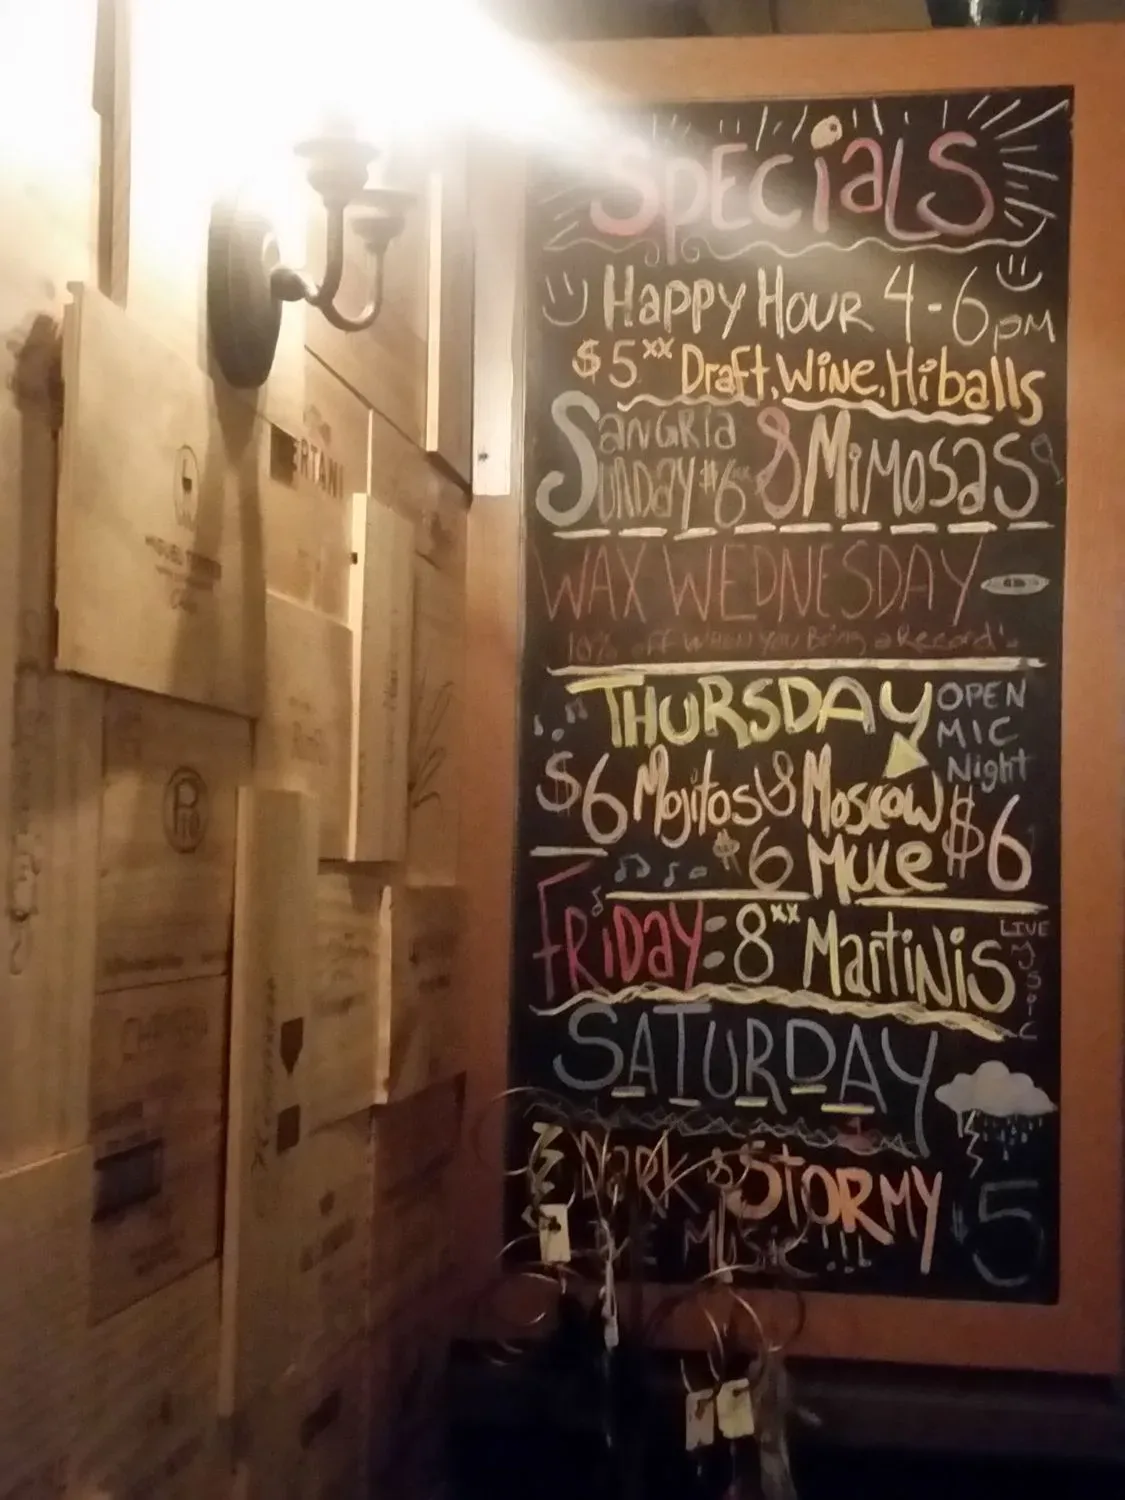 SPECiaLS
Happy Hour 4-6pm
$5xx Draft, Wine, Hiballs
Sangria Sunday $6xx & Mimosas
WAX WEDNESDAY
10% off WHEN YOU Bring a Record!
THURSDAY OPEN MIC Night
$6 Mojitos & Moscow Mule $6
$6
FRiDay: 8xx MartiNis
LIVE MUSIC
SATURDAY
DaRK & STORMY $5
MUSIC!!!
ERTANI